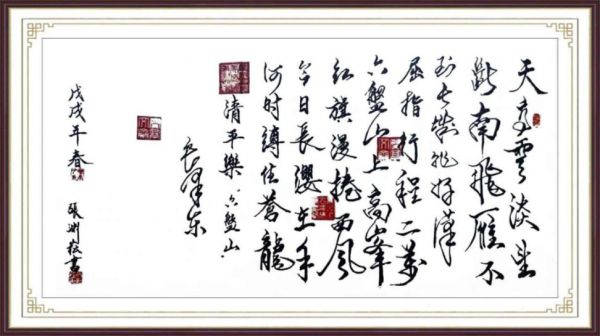 天高雲淡望
斷南飛雁不
到长城非好漢
屈指行程二萬
六盤山上高峰
红旗漫捲西風
今日長纓在手
何时缚住蒼龍
清平樂 六盤山
毛泽东
戊戌年春 張 書